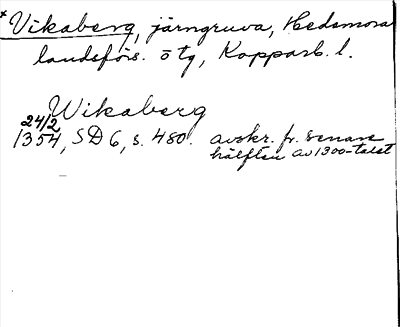 * Vikaberg, järngruva, Hedemora
landsförs. ö tg, Kopparb. l.
Wikaberg
24/2
1354, SD 6, s. 480. avskr. fr. senare
hälften av 1300-talet